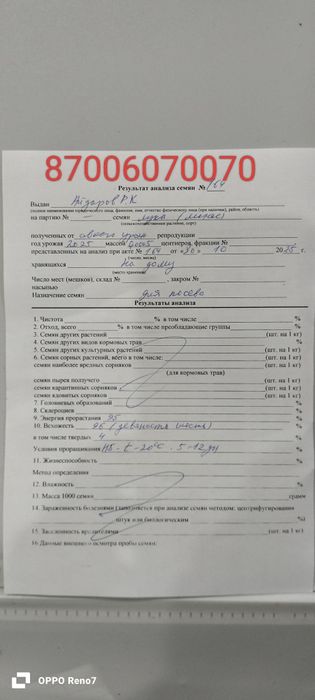 87006070070
Результат анализа семян № 164
Выдан Айдаров Р.К
(полное наименование юридического лица, фамилия, имя, отчество физического лица (при наличии), район, область)
на партию № семян лука (
(сельскохозяйственное растение, сорт)
полученных от репродукции
год урожая 2025 массой центнеров, фракции №
представленных на анализ при акте № 164 от «30» 10 2025 г.
(число, месяц)
хранящихся На дому
(место хранения)
Число мест (мешков), склад № , закром №
насыпью
Назначение семян для посева
Результаты анализа
1. Чистота % в том числе %
2. Отход, всего % в том числе преобладающие группы %
3. Семян других растений (шт. на 1 кг)
4. Семян других видов кормовых трав %
5. Семян других культурных растений (шт. на 1 кг)
6. Семян сорных растений, всего в том числе: (шт. на 1 кг)
семян наиболее вредных сорняков %
(для кормовых трав)
семян пырея ползучего (шт. на 1 кг)
семян карантинных сорняков (шт. на 1 кг)
семян ядовитых сорняков (шт. на 1 кг)
7. Головневых образований %
8. Склероциев %
9. Энергия прорастания 95 %
10. Всхожесть 96 (девяносто шесть) %
в том числе твердых 4 %
Условия проращивания НБ - t - 20°C . 5-12 дн
11. Жизнеспособность %
Метод определения
12. Влажность %
13. Масса 1000 семян грамм
14. Зараженность болезнями (заполняется при анализе семян методом: центрифугирования
штук или биологическим %)
15. Заселенность вредителями (шт. на 1 кг)
16. Данные внешнего осмотра пробы семян:
OPPO Reno7